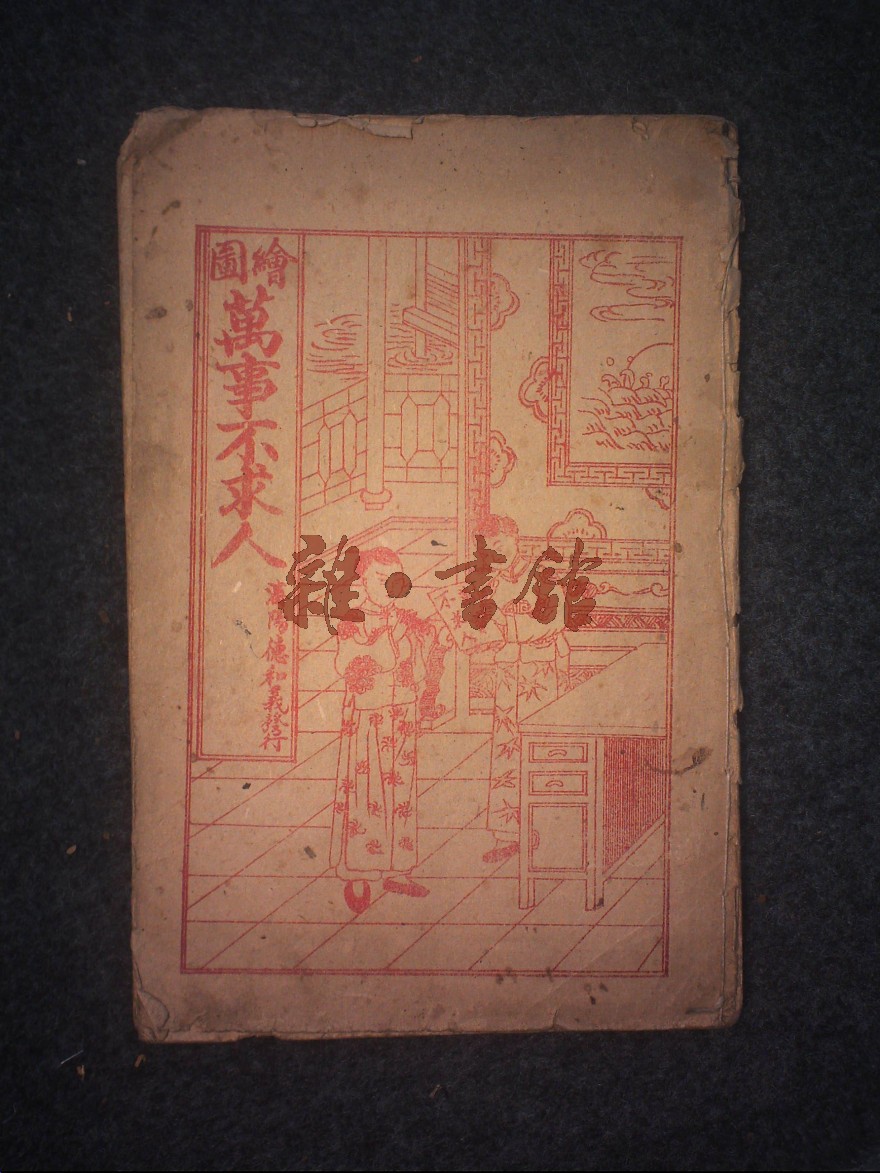 繪圖
萬事不求人
瀋陽德和義發行
雜·書館